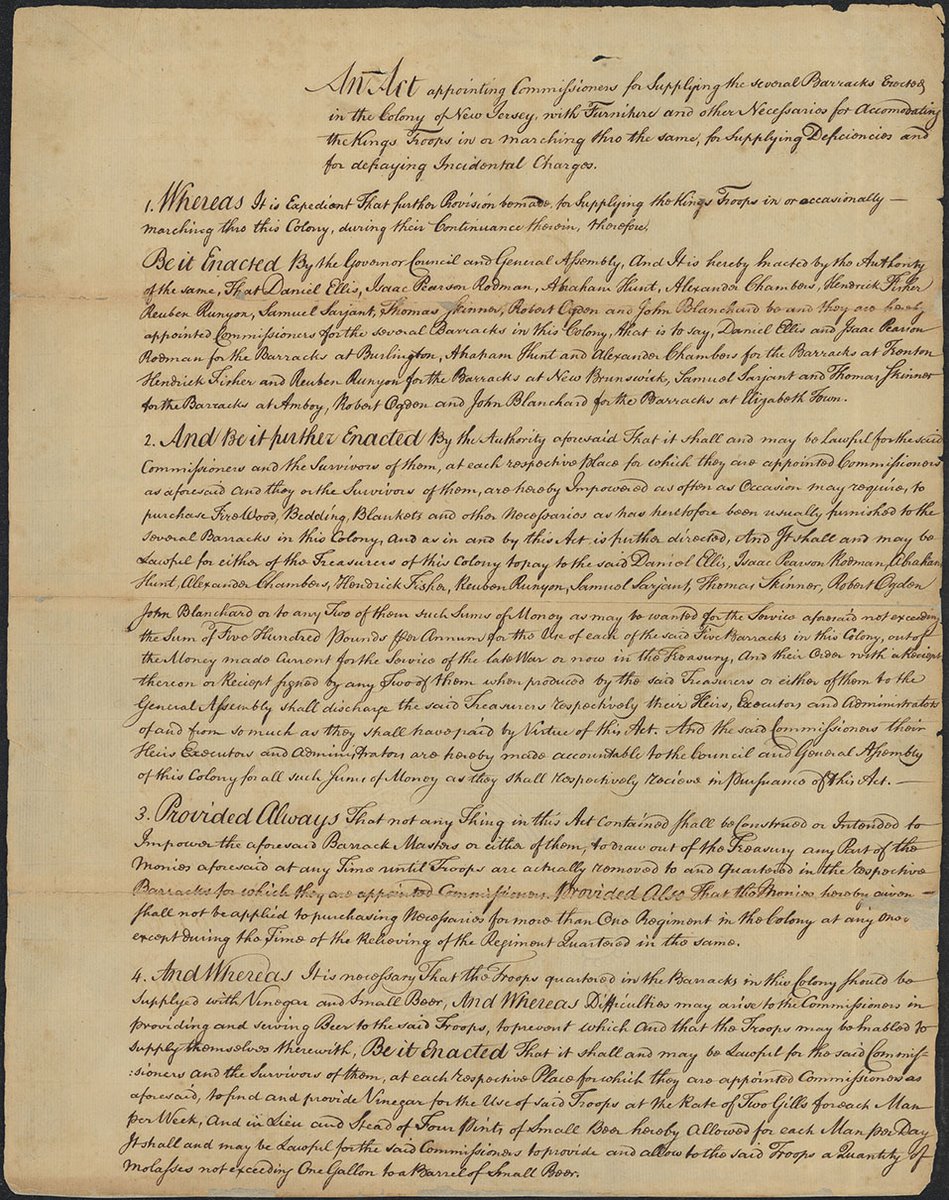 An Act appointing Commissioners for Supplying the several Barracks Erected
in the Colony of New Jersey, with Furniture and other Necessaries for Accomodating
the Kings Troops in or marching thro the same, for Supplying Deficiencies and
for defraying Incidental Charges.
1. Whereas It is Expedient That further Provision be made, for Supplying the Kings Troops in or occasionally —
marching thro this Colony, during their Continuance therein, therefore,
Be it Enacted By the Governor Council and General Assembly, And It is hereby Enacted by the Authority
of the same, That Daniel Ellis, Isaac Pearson Rodman, Abraham Hunt, Alexander Chambers, Hendrick Fisher
Reuben Runyon, Samuel Sarjant, Thomas Skinner, Robert Ogden and John Blanchard be and they are hereby
appointed Commissioners for the several Barracks in this Colony, that is to say, Daniel Ellis and Isaac Pearson
Rodman for the Barracks at Burlington, Abraham Hunt and Alexander Chambers for the Barracks at Trenton
Hendrick Fisher and Reuben Runyon for the Barracks at New Brunswick, Samuel Sarjant and Thomas Skinner
for the Barracks at Amboy, Robert Ogden and John Blanchard for the Barracks at Elizabeth Town.
2. And Be it further Enacted By the Authority aforesaid That it shall and may be Lawful for the said
Commissioners and the Survivors of them, at each respective place for which they are appointed Commissioners
as aforesaid and they or the Survivors of them, are hereby Impowered as often as Occasion may require, to
purchase Fire Wood, Bedding, Blankets and other Necessaries as has heretofore been usually furnished to the
several Barracks in this Colony, and as in and by this Act is further directed, And It shall and may be
Lawful for either of the Treasurers of this Colony to pay to the said Daniel Ellis, Isaac Pearson Rodman, Abraham
Hunt, Alexander Chambers, Hendrick Fisher, Reuben Runyon, Samuel Sarjant, Thomas Skinner, Robert Ogden
John Blanchard or to any Two of them such Sums of Money as may be wanted for the Service aforesaid not exceeding
the Sum of Two Hundred Pounds per Annum for the Use of each of the said Five Barracks in this Colony, out of
the Money made Current for the Service of the late War or now in the Treasury, And their Order with a Reciept
thereon or Reciept signed by any Two of them when produced by the said Treasurers or either of them to the
General Assembly shall discharge the said Treasurers respectively their Heirs, Executors and Administrators
of and from so much as they shall have paid by Virtue of this Act. And the said Commissioners their
Heirs Executors and Administrators are hereby made accountable to the Council and General Assembly
of this Colony for all such Sums of Money as they shall respectively recieve in Pursuance of this Act. —
3. Provided Always That not any Thing in this Act Contained shall be Construed or Intended to
Impower the aforesaid Barrack Masters or either of them, to draw out of the Treasury any Part of the
Monies aforesaid at any Time until Troops are actually removed to and Quartered in the Respective
Barracks for which they are appointed Commissioners, Provided Also That the Monies hereby given —
shall not be applied to purchasing Necessaries for more than One Regiment in the Colony at any once
except during the Time of the Relieving of the Regiment Quartered in the same.
4. And Whereas It is necessary That the Troops quartered in the Barracks in this Colony should be
Supplyed with Vinegar and Small Beer, And Whereas Difficulties may arise to the Commissioners in
providing and serving Beer to the said Troops, to prevent which And that the Troops may be Enabled to
supply themselves therewith, Be it Enacted That it shall and may be Lawful for the said Commis-
:sioners and the Survivors of them, at each respective Place for which they are appointed Commissioners as
aforesaid, to find and provide Vinegar for the Use of said Troops at the Rate of Two Gills for each Man
per Week, And in Lieu and Stead of Four Pints of Small Beer hereby Allowed for each Man per Day
It shall and may be Lawful for the said Commissioners to provide and allow to the said Troops a Quantity of
Molasses not exceeding One Gallon to a Barrel of Small Beer.